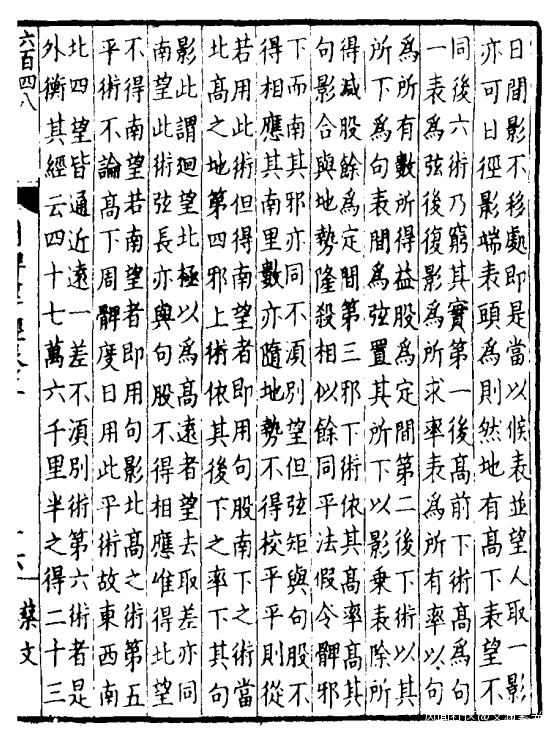 日間影不移處即是當以候表並望人取一影
亦可日徑影端表頭為則然地有高下表望不
同後六術乃窮其實第一後高前下術高為句
一表為弦後復影為所求率表為所有率以句
為所有數所得益股為定間第二後下術以其
所下為句表間為弦置其所下以影乗表除所
得減股餘為定間第三邪下術依其高率高其
句影合與地勢隆殺相似餘同平法假令髀邪
下而南其邪亦同不湏別望但弦矩與句股不
得相應其南里數亦隨地勢不得校平平則從
若用此術但得南望者即用句股南下之術當
北高之地第四邪上術依其後下之率下其句
影此謂迴望北極以為高遠者望去取差亦同
南望此術弦長亦與句股不得相應惟得北望
不得南望若南望者即用句影北高之術第五
平術不論高下周髀度日用此平術故東西南
北四望皆通近遠一差不湏別術第六術者是
外衡其經云四十七萬六千里半之得二十三
六百四八
蔡文